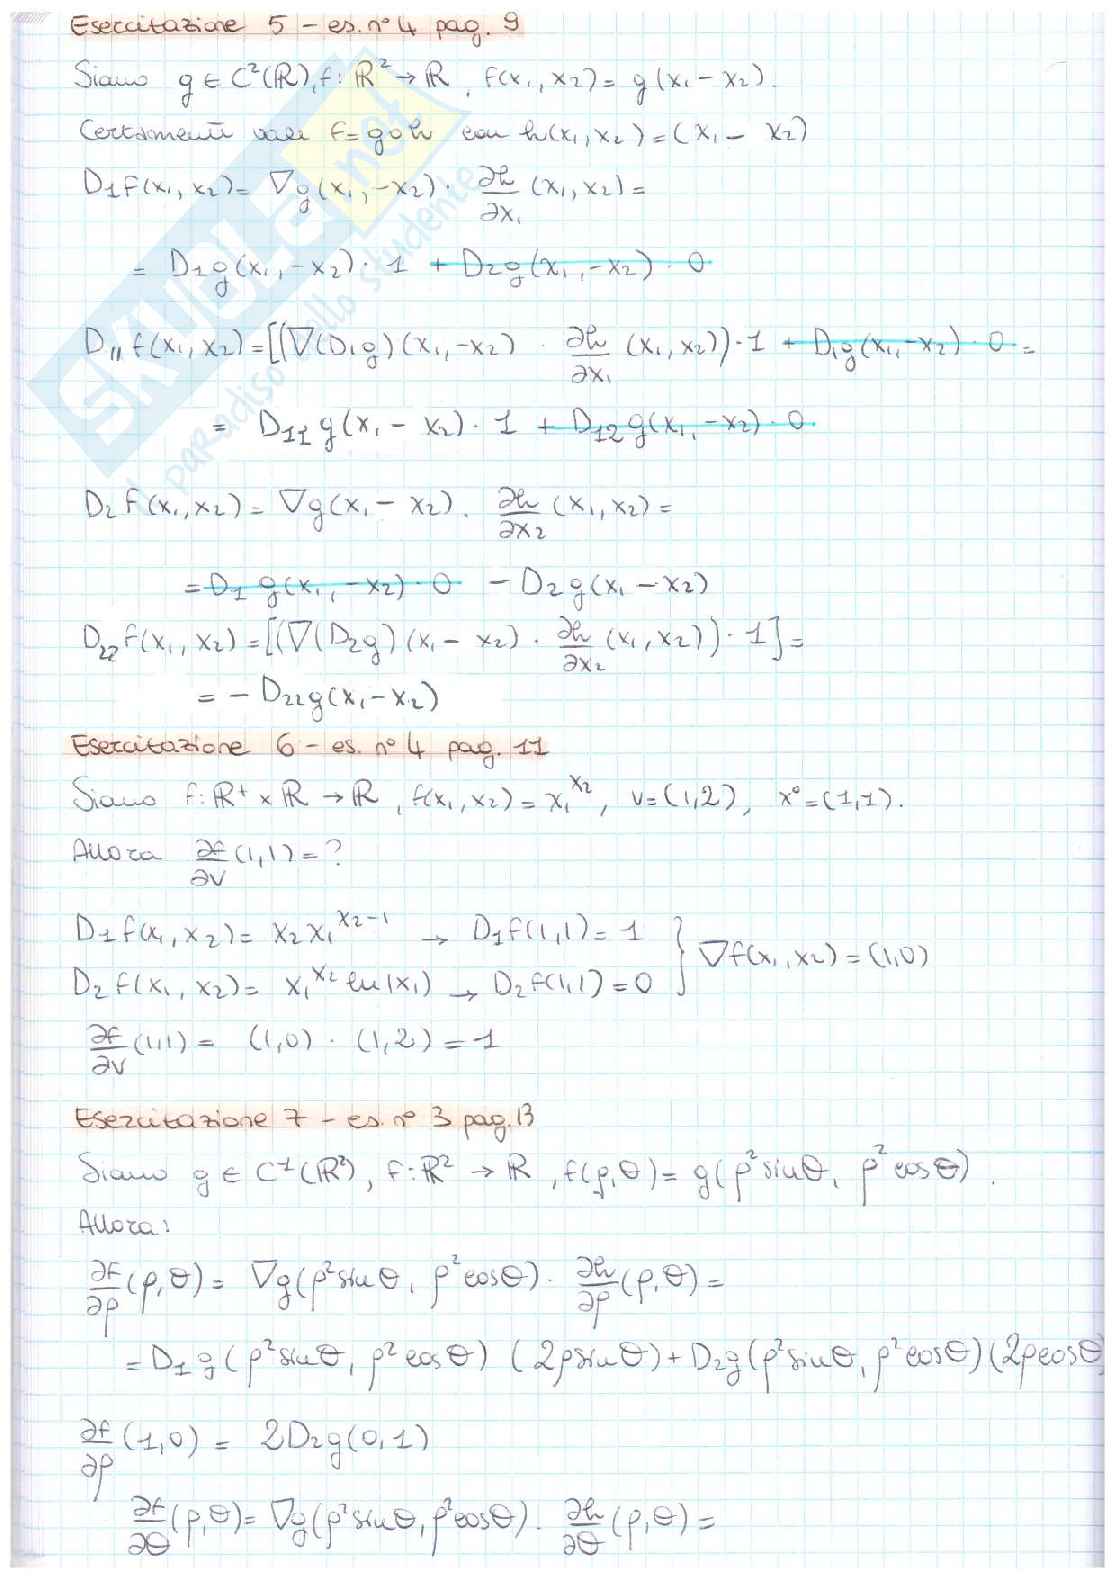 Esercitazione 5 – es. n° 4 pag. 9
Siano g ∈ C²(ℝ), f: ℝ² → ℝ, f(x₁, x₂) = g(x₁ – x₂).
Certamente vale f = g∘h con h(x₁, x₂) = (x₁ – x₂)
D₁f(x₁, x₂) = ∇g(x₁, –x₂) · ∂h/∂x₁ (x₁, x₂) =
= D₁g(x₁, –x₂) · 1 + D₂g(x₁, –x₂) · 0
D₁₁f(x₁, x₂) = [(∇(D₁g)(x₁, –x₂) · ∂h/∂x₁ (x₁, x₂)) · 1 + D₁g(x₁, –x₂) · 0 =
= D₁₁g(x₁ – x₂) · 1 + D₁₂g(x₁, –x₂) · 0
D₂f(x₁, x₂) = ∇g(x₁ – x₂) · ∂h/∂x₂ (x₁, x₂) =
= D₁g(x₁, –x₂) · 0 – D₂g(x₁ – x₂)
D₂₂f(x₁, x₂) = [(∇(D₂g)(x₁ – x₂) · ∂h/∂x₂ (x₁, x₂)) · 1] =
= – D₂₂g(x₁ – x₂)
Esercitazione 6 – es. n° 4 pag. 11
Siano f: ℝ⁺ × ℝ → ℝ, f(x₁, x₂) = x₁^x₂, v = (1,2), x° = (1,1).
Allora ∂f/∂v (1,1) = ?
D₁f(x₁, x₂) = x₂x₁^(x₂–1) → D₁f(1,1) = 1 } ∇f(x₁, x₂) = (1,0)
D₂f(x₁, x₂) = x₁^x₂ ln|x₁) → D₂f(1,1) = 0
∂f/∂v (1,1) = (1,0) · (1,2) = 1
Esercitazione 7 – es. n° 3 pag. 13
Siano g ∈ C¹(ℝ²), f: ℝ² → ℝ, f(ρ,θ) = g(ρ²sinθ, ρ²cosθ).
Allora:
∂f/∂ρ (ρ,θ) = ∇g(ρ²sinθ, ρ²cosθ) · ∂h/∂ρ (ρ,θ) =
= D₁g(ρ²sinθ, ρ²cosθ) (2ρsinθ) + D₂g(ρ²sinθ, ρ²cosθ)(2ρcosθ)
∂f/∂ρ (1,0) = 2D₂g(0,1)
∂f/∂θ (ρ,θ) = ∇g(ρ²sinθ, ρ²cosθ) · ∂h/∂θ (ρ,θ) =
SKUOLA.net
il paradiso dello studente